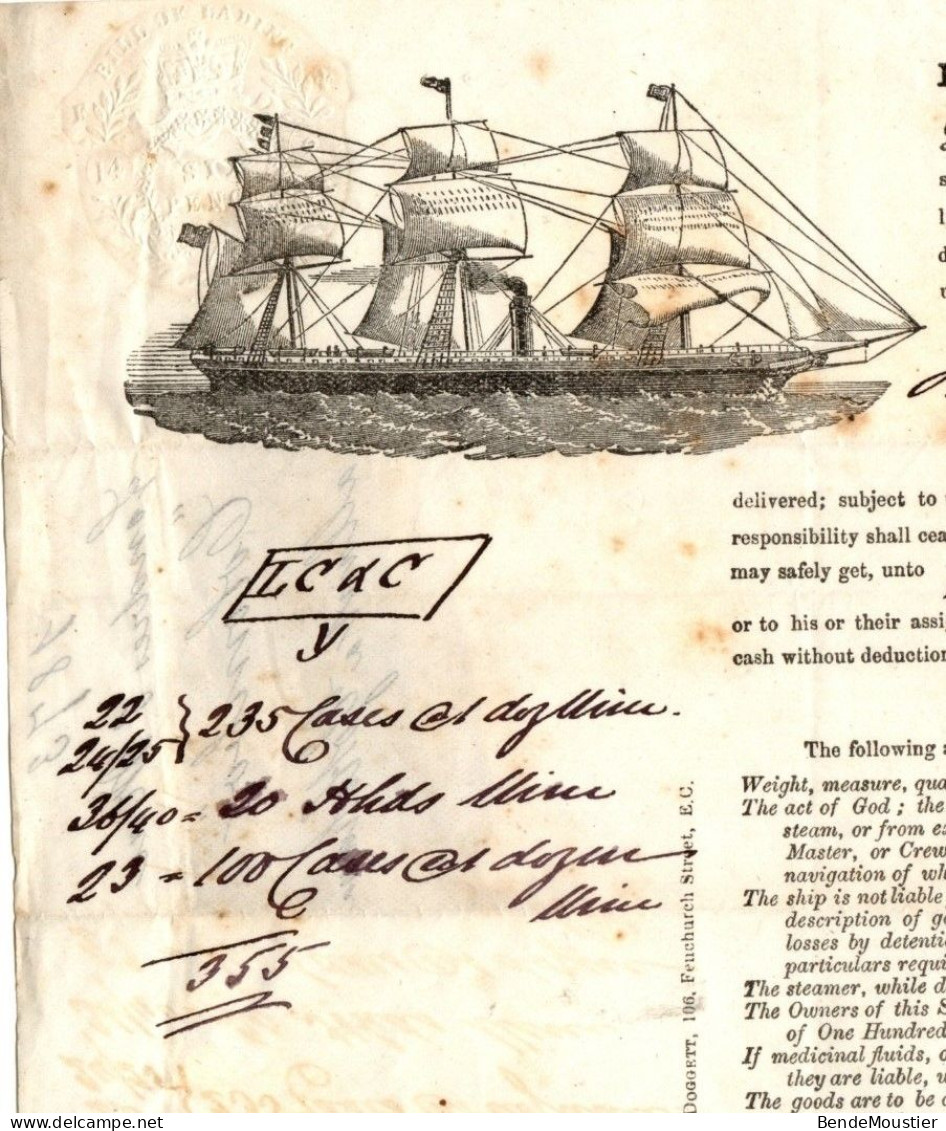 BILL OF LADING
LC & C
y
22
24/25 } 235 Cases @ 1 doz Wine.
36/40 = 20 Hhds Wine
23 = 100 Cases @ 1 dozen
Wine
355
delivered; subject to
responsibility shall cea
may safely get, unto
or to his or their assi
cash without deduction
The following
Weight, measure, qua
The act of God; the
steam, or from
Master, or Crew
navigation of wh
The ship is not liable
description of g
losses by detenti
particulars requi
The steamer, while d
The Owners of this S
of One Hundred
If medicinal fluids, o
they are liable, w
The goods are to be
DOGGETT, 106, Fenchurch Street, E.C.
Delcampe.net
BendeMoustier